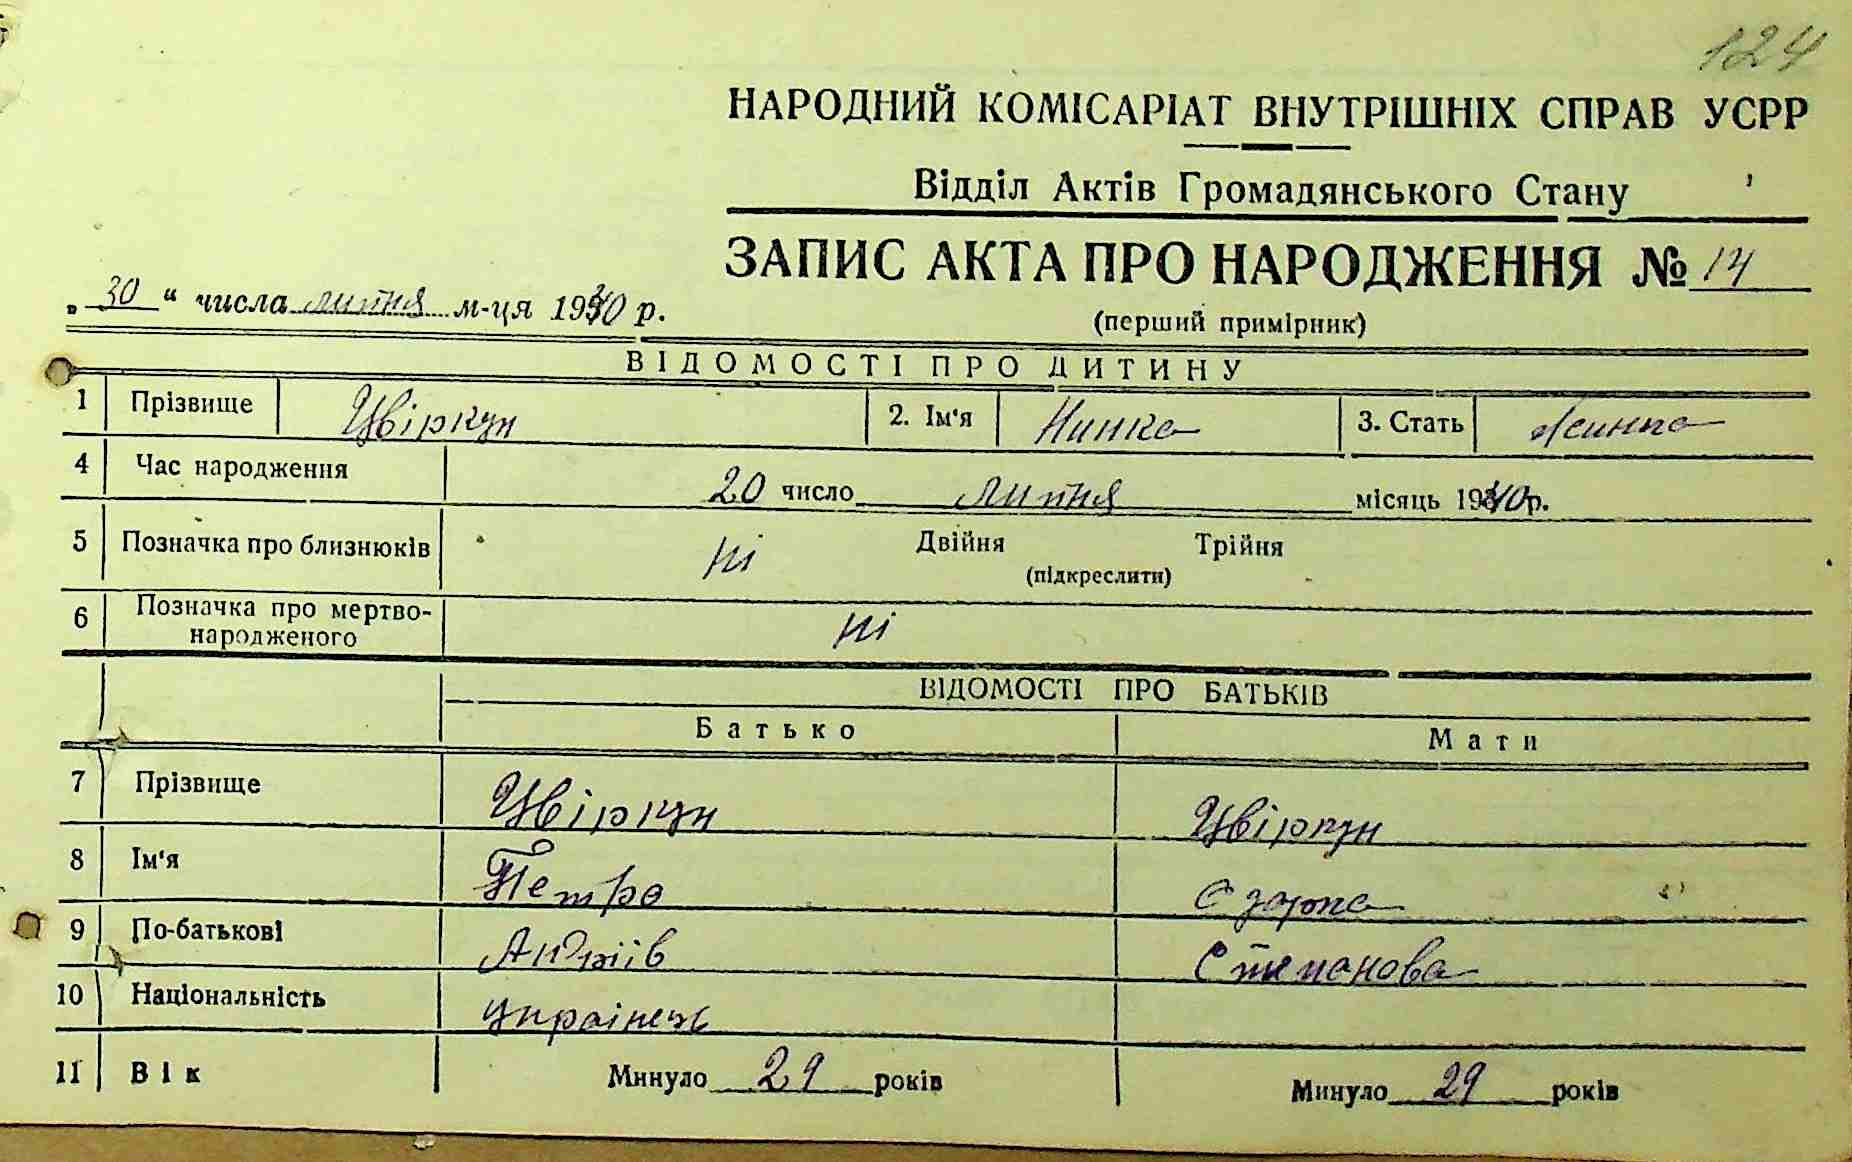 124
НАРОДНИЙ КОМІСАРІАТ ВНУТРІШНІХ СПРАВ УСРР
Відділ Актів Громадянського Стану
ЗАПИС АКТА ПРО НАРОДЖЕННЯ № 14
„ 30 “ числа липня м-ця 1940 р.
(перший примірник)
ВІДОМОСТІ ПРО ДИТИНУ
1 Прізвище Цвіркун 2. Ім'я Нинка 3. Стать
4 Час народження 20 число липня місяць 1940 р.
5 Позначка про близнюків ні Двійня Трійня
(підкреслити)
6 Позначка про мертво-
народженого ні
ВІДОМОСТІ ПРО БАТЬКІВ
Батько Мати
7 Прізвище Цвіркун Цвіркун
8 Ім'я Петро Одарка
9 По-батькові Андріїв Степанова
10 Національність українець
11 Вік Минуло 29 років Минуло 29 років